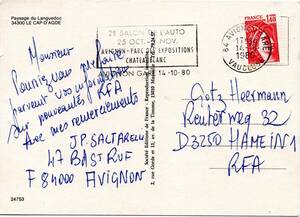 Paysage du Languedoc
34300 LE CAP D'AGDE
2ᴱ SALON DE L'AUTO
25 OCT. 2 NOV.
AVIGNON-PARC DES EXPOSITIONS
CHATEAUBLANC
AVIGNON GARE 14-10-80
84 AVIGNON
17
14-10
1980
VAUCLUSE
1,40
Monsieur
Pourriez vous me faire
parvenir vos informations
sur nouveautés
RFA
Avec mes remerciements
J.P. SALTARELLI
47 BAST RUF
F 84000 AVIGNON
Götz Heermann
Reuterweg 32
D3250 HAMELN 1
RFA
Société Editions de France
24753